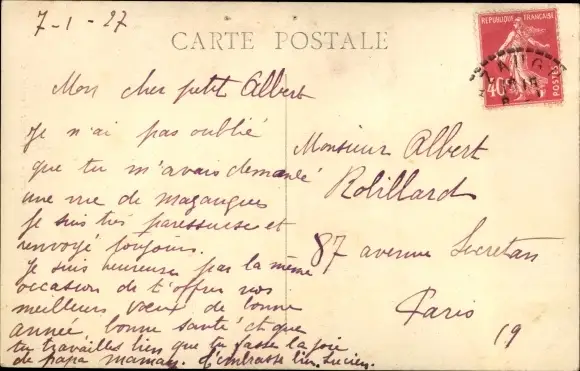 7-1-27
CARTE POSTALE
REPUBLIQUE FRANÇAISE
40
POSTES
Mon cher petit Albert
Je n'ai pas oublié
que tu m'avais demandé
une vue de Mazangues
Je suis très paresseuse et
renvoyé toujours.
Je suis heureuse par la même
occasion de t'offrir nos
meilleurs vœux de bonne
année bonne santé et que
tu travailles bien que tu fasses la joie
de papa maman. J'embrasse bien Lucien.
Monsieur Albert
Robillard
87 avenue Secretan
Paris
19